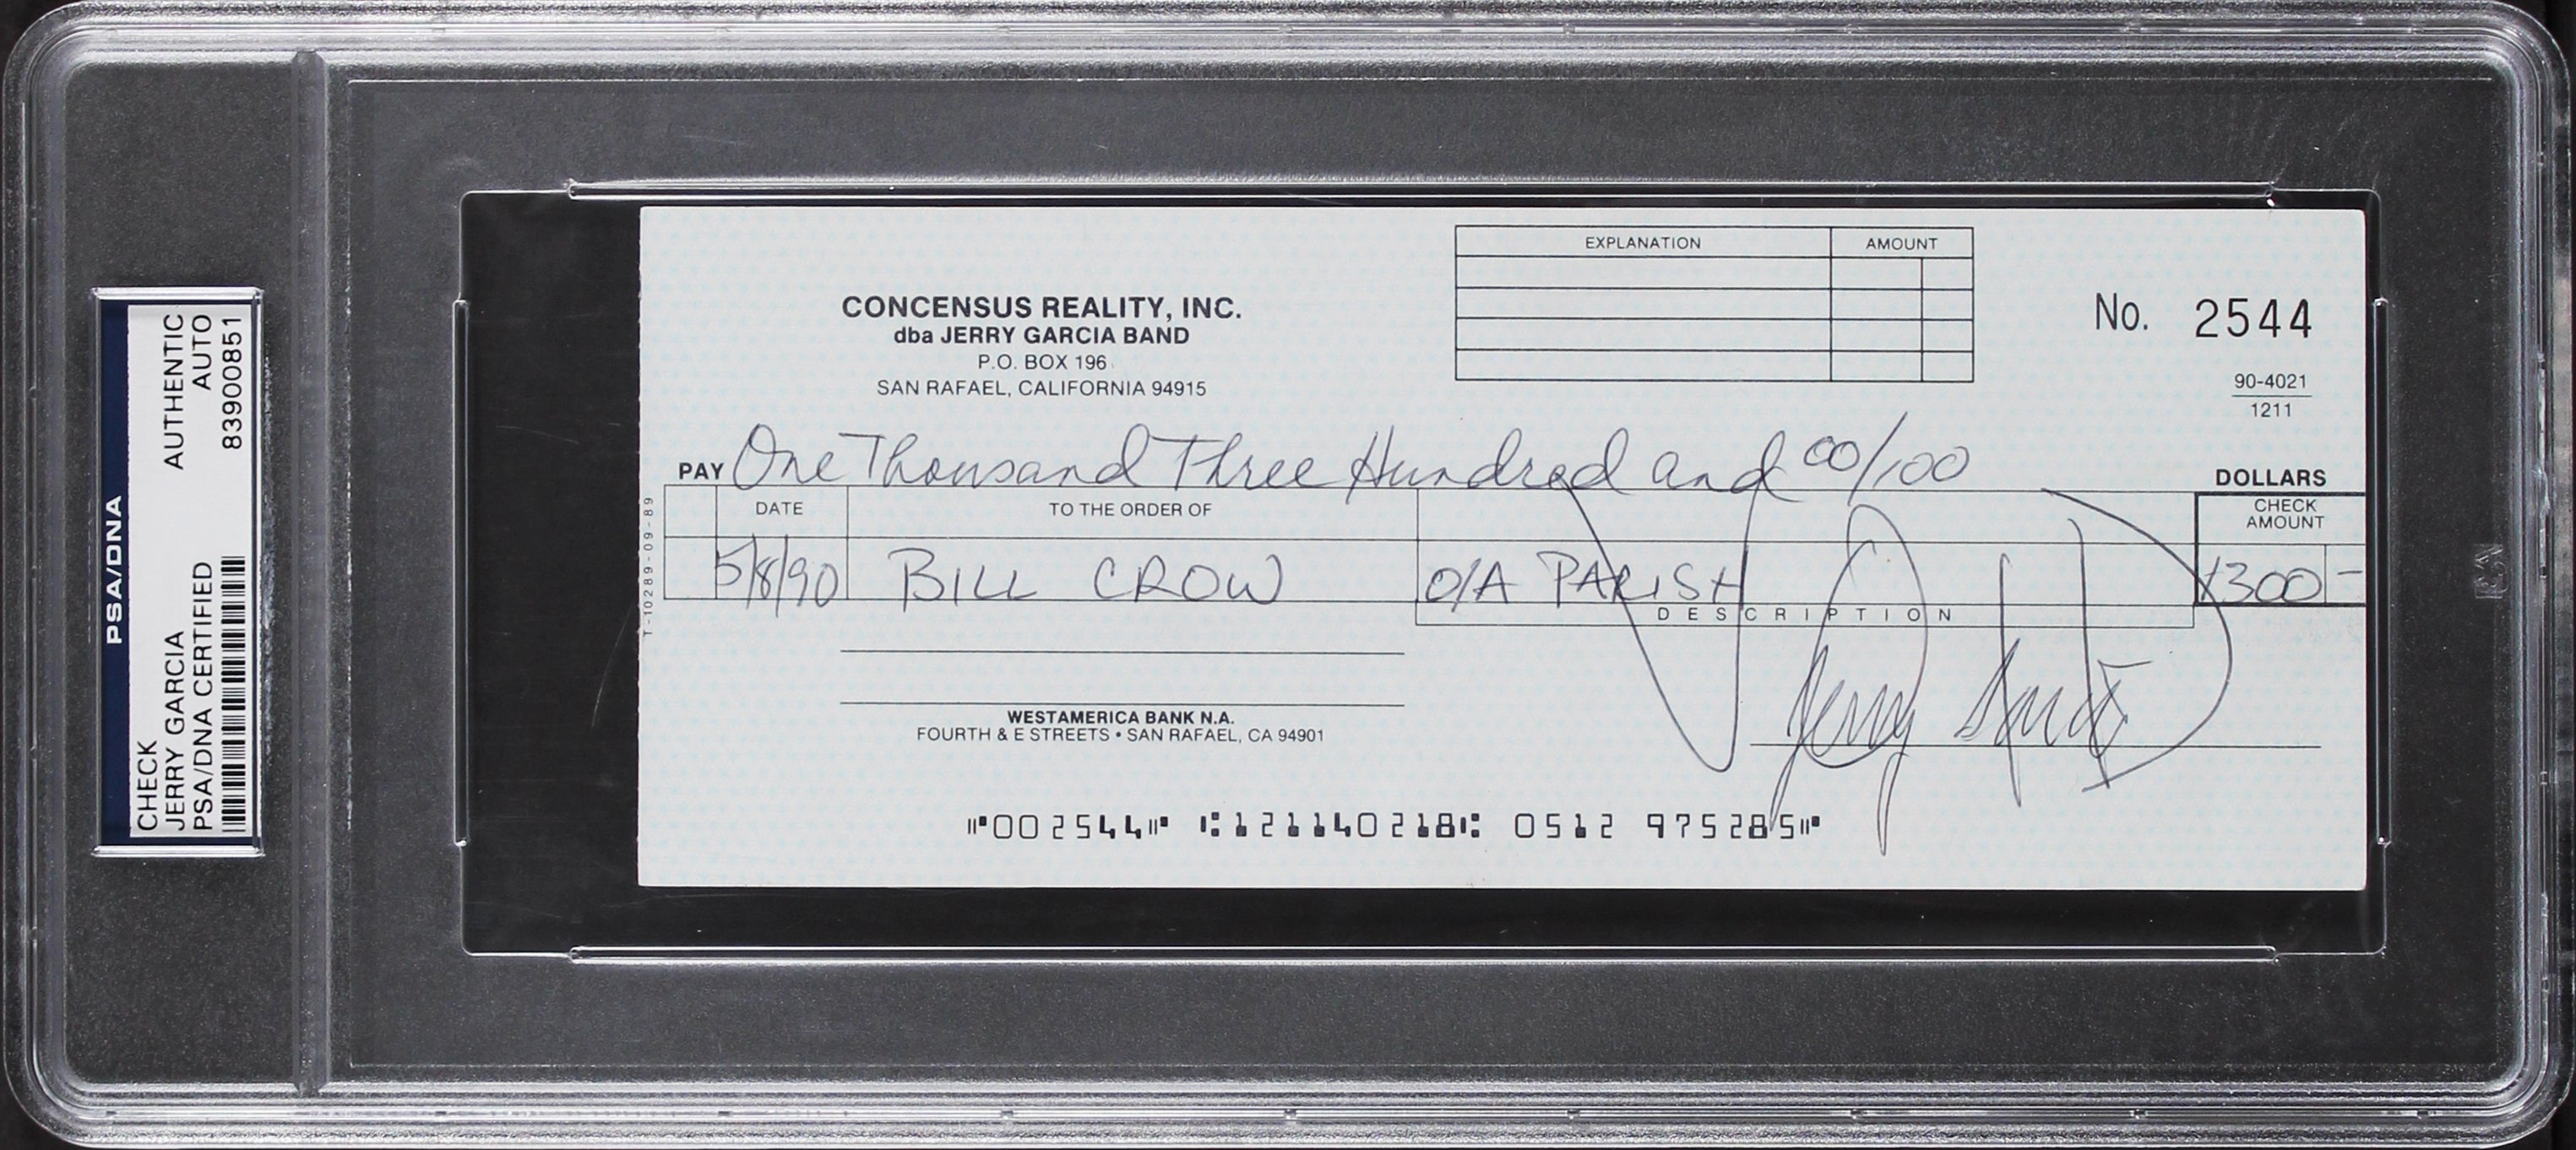 PSA/DNA
CHECK AUTHENTIC
JERRY GARCIA AUTO
PSA/DNA CERTIFIED 83900851
EXPLANATION AMOUNT
CONCENSUS REALITY, INC.
dba JERRY GARCIA BAND
P.O. BOX 196
SAN RAFAEL, CALIFORNIA 94915
No. 2544
90-4021
1211
PAY One Thousand Three Hundred and 00/100 DOLLARS
DATE TO THE ORDER OF CHECK AMOUNT
5/8/90 BILL CROW O/A PARISH 1300 -
DESCRIPTION
T-10289-09-89
Jerry Garcia
WESTAMERICA BANK N.A.
FOURTH & E STREETS • SAN RAFAEL, CA 94901
⑈002544⑈ ⑆121140218⑆ 0512 975285⑈